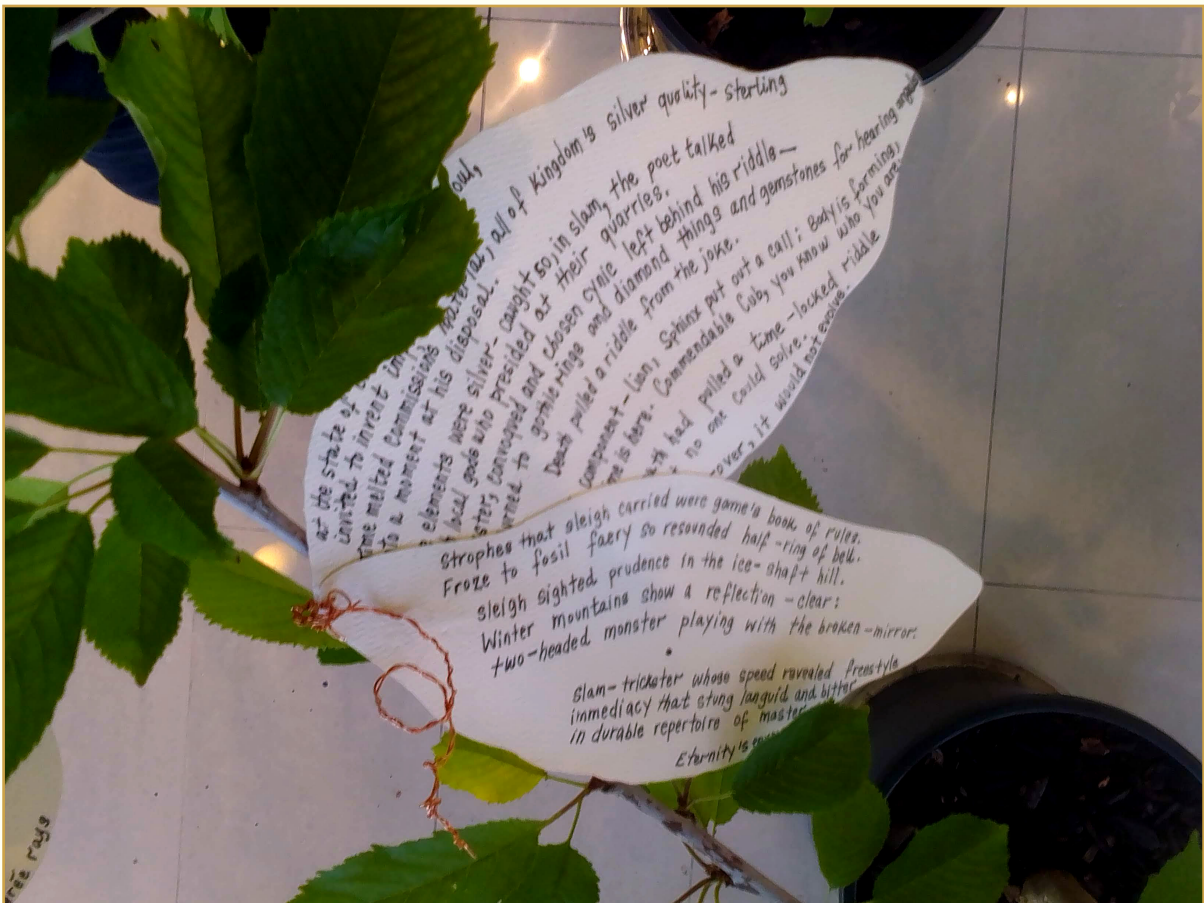 Kingdom's silver quality-sterling
all of
at the state of
invited to invent
time melted commissions material,
a moment at his disposal.
elements were silver-caught so, in slam, the poet talked
local gods who presided at their quarries.
convoqued and chosen cynic left behind his riddle—
to gothic rings and diamond things and gemstones for hearing
Death pulled a riddle from the joke.
component-Lion, Sphinx put out a call: Body is forming,
is here. Commendable Cub, you know who you are.
had pulled a time-locked riddle
no one could solve.
it would not evolve.
Strophes that sleigh carried were game's book of rules.
Froze to fosil faery so resounded half-ring of bell.
sleigh sighted prudence in the ice-shaft hill.
Winter mountains show a reflection-clear:
two-headed monster playing with the broken-mirror.
Slam-trickster whose speed revealed freestyle
immediacy that stung languid and bitter
in durable repertoire of
Eternity's
rays